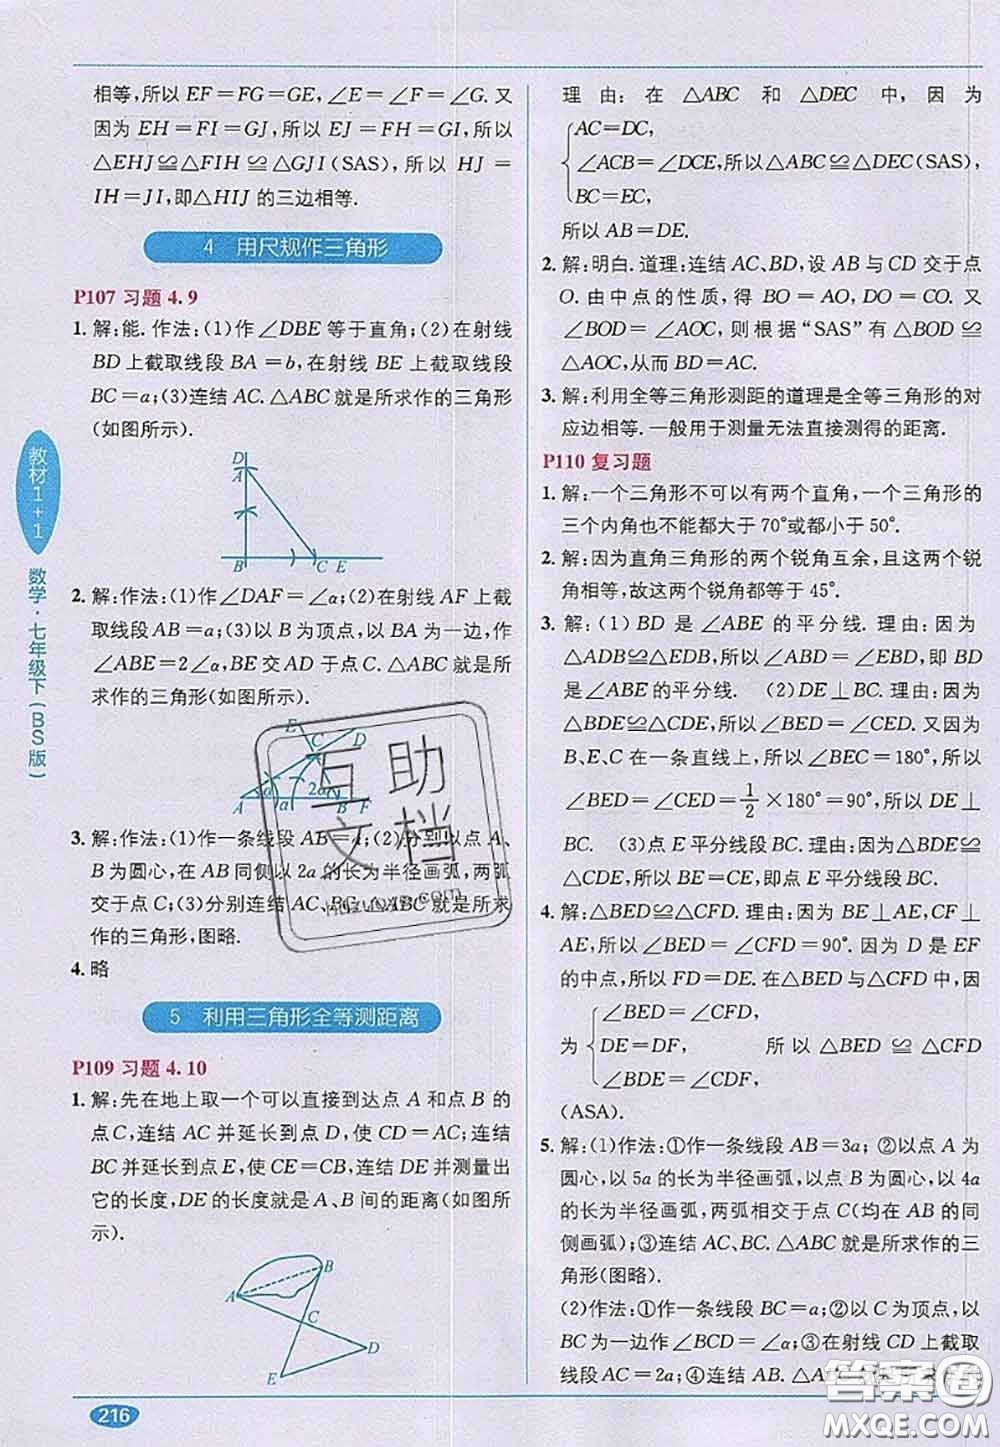 相等,所以 EF=FG=GE,∠E=∠F=∠G.又
因为 EH=FI=GJ,所以 EJ=FH=GI,所以
△EHJ≌△FIH≌△GJI(SAS),所以 HJ=
IH=JI,即△HIJ 的三边相等.
4 用尺规作三角形
P107 习题 4.9
1. 解:能.作法:(1)作∠DBE 等于直角;(2)在射线
BD 上截取线段 BA=b,在射线 BE 上截取线段
BC=a;(3)连结 AC.△ABC 就是所求作的三角形
(如图所示).
D
A
B
C E
2. 解:作法:(1)作∠DAF=∠α;(2)在射线 AF 上截
取线段 AB=a;(3)以 B 为顶点,以 BA 为一边,作
∠ABE=2∠α,BE 交 AD 于点 C.△ABC 就是所
求作的三角形(如图所示).
E
C
D
A
α
2α
a
B
F
3. 解:作法:(1)作一条线段 AB=a;(2)分别以点 A、
B 为圆心,在 AB 同侧以 2a 的长为半径画弧,两弧
交于点 C;(3)分别连结 AC、BC.△ABC 就是所求
作的三角形,图略.
4. 略
5 利用三角形全等测距离
P109 习题 4.10
1. 解:先在地上取一个可以直接到达点 A 和点 B 的
点 C,连结 AC 并延长到点 D,使 CD=AC;连结
BC 并延长到点 E,使 CE=CB,连结 DE 并测量出
它的长度,DE 的长度就是 A、B 间的距离(如图所
示).
B
A
C
D
E
理由:在 △ABC 和 △DEC 中,因为
AC=DC,
∠ACB=∠DCE,所以△ABC≌△DEC(SAS),
BC=EC,
所以 AB=DE.
2. 解:明白.道理:连结 AC、BD,设 AB 与 CD 交于点
O.由中点的性质,得 BO=AO,DO=CO.又
∠BOD=∠AOC,则根据“SAS”有△BOD≌
△AOC,从而 BD=AC.
3. 解:利用全等三角形测距的道理是全等三角形的对
应边相等.一般用于测量无法直接测得的距离.
P110 复习题
1. 解:一个三角形不可以有两个直角,一个三角形的
三个内角也不能都大于 70°或都小于 50°.
2. 解:因为直角三角形的两个锐角互余,且这两个锐
角相等,故这两个锐角都等于 45°.
3. 解:(1)BD 是∠ABE 的平分线.理由:因为
△ADB≌△EDB,所以∠ABD=∠EBD,即 BD
是∠ABE 的平分线. (2)DE⊥BC.理由:因为
△BDE≌△CDE,所以∠BED=∠CED.又因为
B、E、C 在一条直线上,所以∠BEC=180°,所以
∠BED=∠CED=1/2×180°=90°,所以 DE⊥
BC. (3)点 E 平分线段 BC.理由:因为△BDE≌
△CDE,所以 BE=CE,即点 E 平分线段 BC.
4. 解:△BED≌△CFD.理由:因为 BE⊥AE,CF⊥
AE,所以∠BED=∠CFD=90°.因为 D 是 EF
的中点,所以 FD=DE.在△BED 与△CFD 中,因
∠BED=∠CFD,
为 DE=DF, 所以 △BED≌△CFD
∠BDE=∠CDF,
(ASA).
5. 解:(1)作法:①作一条线段 AB=3a;②以点 A 为
圆心,以 5a 的长为半径画弧,以点 B 为圆心,以 4a
的长为半径画弧,两弧相交于点 C(均在 AB 的同
侧画弧);③连结 AC、BC.△ABC 就是所求作的三
角形(图略).
(2)作法:①作一条线段 BC=a;②以 C 为顶点,以
BC 为一边作∠BCD=∠α;③在射线 CD 上截取
线段 AC=2a;④连结 AB.
教材 1+1
数学·七年级下(BS版)
216
互助
文档
答案圈
MXQE.COM